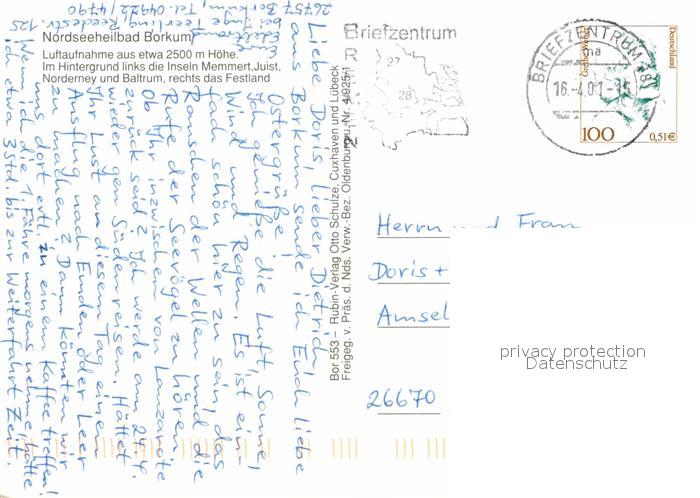 Nordseeheilbad Borkum
Luftaufnahme aus etwa 2500 m Höhe.
Im Hintergrund links die Inseln Memmert, Juist,
Norderney und Baltrum, rechts das Festland
Liebe Doris, lieber Dietrich,
aus Borkum sende ich Euch liebe
Ostergrüße!
Ich genieße die Luft, Sonne
Wind und Regen. Es ist ein-
fach schön hier zu sein, das
Rauschen der Wellen und die
Rufe der Seevögel zu hören.
Ob Ihr inzwischen von Lanzarote
zurück seid? Ich werde am 24.4.
wieder gen Süden reisen. Hättet
Ihr Lust an diesem Tag einen
Ausflug nach Emden oder Leer
zu machen? Dann könnten wir
uns dort evtl. zu einem Kaffee treffen!
Wenn ich die 1. Fähre morgens nehme, hätte
ich etwa 3 Std. bis zur Weiterfahrt Zeit.
Eure
bei Inge Teerling, Reedestr. 125
26757 Borkum, Tel. 04922/4790
Bor 553 – Rubin-Verlag Otto Schulze, Cuxhaven und Lübeck
Freigeg. v. Präs. d. Nds. Verw.-Bez. Oldenburg u. Nr. 4/925/1
Briefzentrum
27
28
BRIEFZENTRUM
16.-4.01-15
Deutschland
100
0,51€
Herrn und Frau
Doris +
Amsel
26670
privacy protection
Datenschutz